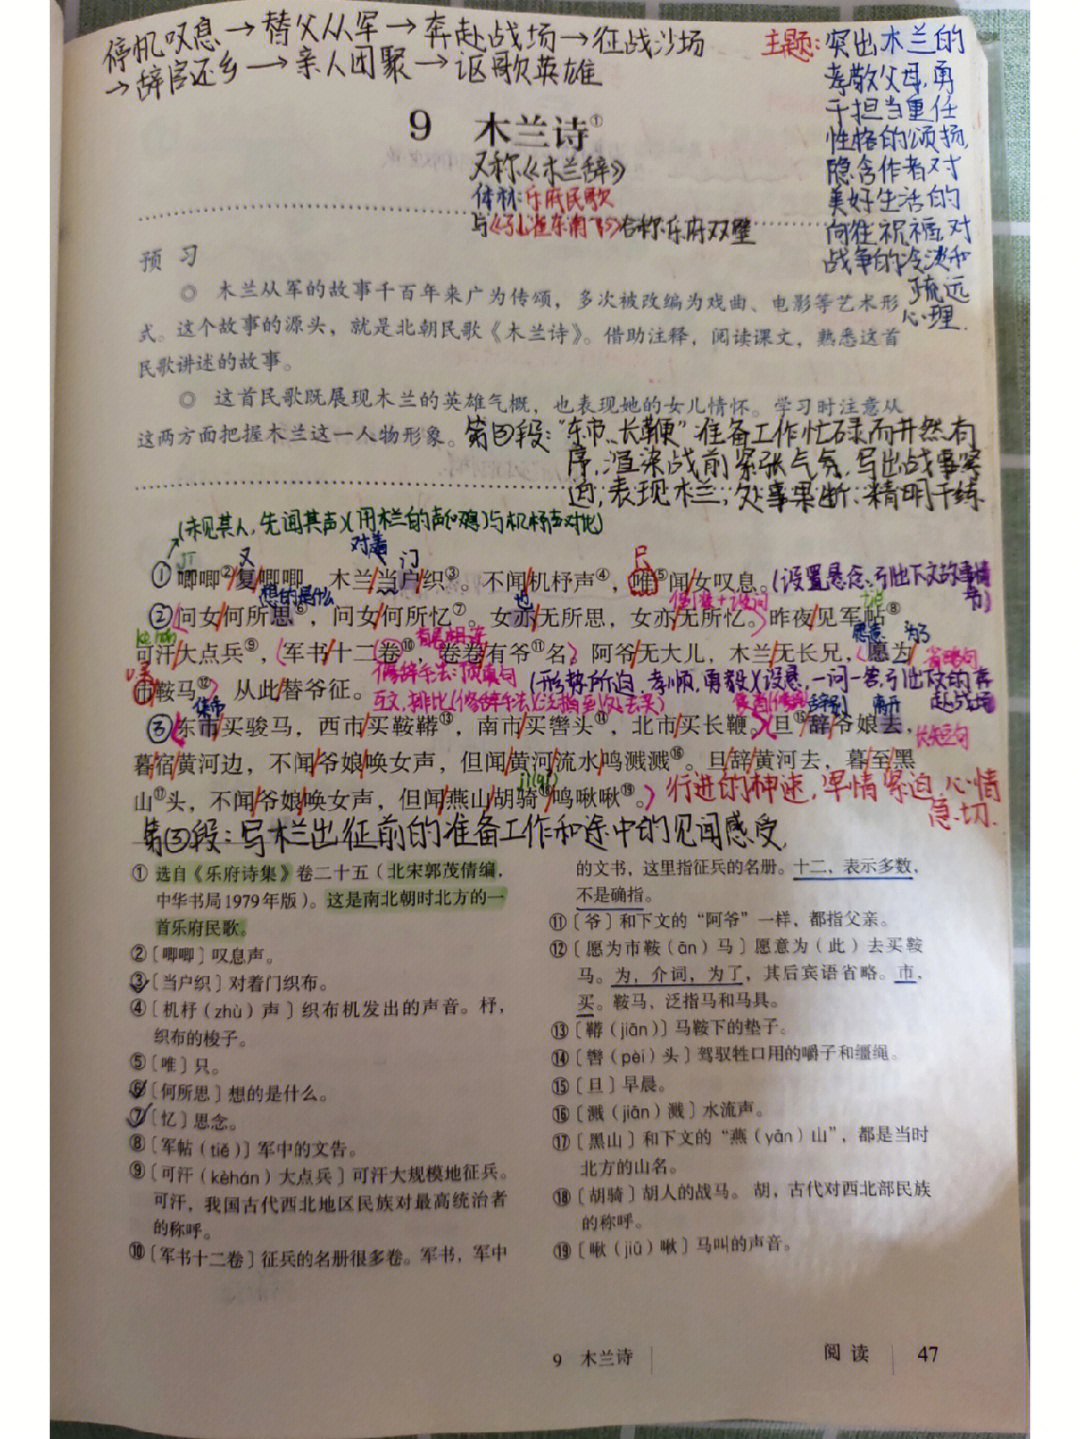 停机叹息→替父从军→奔赴战场→征战沙场
→辞官还乡→亲人团聚→讴歌英雄
主题:突出木兰的
孝敬父母,勇
于担当重任
性格的颂扬,
隐含作者对
美好生活的
向往祝福,对
战争的冷淡和
疏远
心理.
9 木兰诗①
又称《木兰辞》
体材:乐府民歌
与《孔雀东南飞》合称乐府双璧
预 习
◎ 木兰从军的故事千百年来广为传颂，多次被改编为戏曲、电影等艺术形
式。这个故事的源头，就是北朝民歌《木兰诗》。借助注释，阅读课文，熟悉这首
民歌讲述的故事。
◎ 这首民歌既展现木兰的英雄气概，也表现她的女儿情怀。学习时注意从
这两方面把握木兰这一人物形象。
第③段:"东市、长鞭"准备工作忙碌而井然有
序,渲染战前紧张气氛,写出战事紧
迫,表现木兰,处事果断、精明干练
(未见其人,先闻其声)(用木兰的声(叹息)与机杼声对比)
又 对着 门 只
①唧唧②/复/唧唧，木兰/当户/织③。不闻/机杼声④，唯⑤闻/女叹息。(设置悬念,引出下文的事情
想的是什么 也
②问女/何所思⑥，问女/何所忆⑦。女亦/无所思，女亦/无所忆。昨夜/见军帖⑧
愿意 为了
可汗/大点兵⑨，军书/十二卷⑩，卷卷/有爷⑪名。阿爷/无大儿，木兰/无长兄，愿为
修辞手法:顶真句
市/鞍马⑫，从此/替爷征。(形势所迫,孝顺,勇毅)(设悬,一问一答,引出攻的奔
赴战场
辞别 离开
③东市/买骏马，西市/买鞍鞯⑬，南市/买辔头⑭，北市/买长鞭。旦⑮/辞/爷娘去，
长短句
暮/宿/黄河边，不闻/爷娘/唤女声，但闻/黄河/流水/鸣溅溅⑯。旦/辞/黄河去，暮/至/黑
山⑰头，不闻/爷娘/唤女声，但闻/燕山/胡骑⑱/鸣啾啾⑲。
行进的神速,军情紧迫,心情
急切.
第③段:写木兰出征前的准备工作和途中的见闻感受
① 选自《乐府诗集》卷二十五（北宋郭茂倩编，
中华书局1979年版）。这是南北朝时北方的一
首乐府民歌。
②〔唧唧〕叹息声。
③〔当户织〕对着门织布。
④〔机杼（zhù）声〕织布机发出的声音。杼，
织布的梭子。
⑤〔唯〕只。
⑥〔何所思〕想的是什么。
⑦〔忆〕思念。
⑧〔军帖（tiě）〕军中的文告。
⑨〔可汗（kèhán）大点兵〕可汗大规模地征兵。
可汗，我国古代西北地区民族对最高统治者
的称呼。
⑩〔军书十二卷〕征兵的名册很多卷。军书，军中
的文书，这里指征兵的名册。十二，表示多数，
不是确指。
⑪〔爷〕和下文的“阿爷”一样，都指父亲。
⑫〔愿为市鞍（ān）马〕愿意为（此）去买鞍
马。为，介词，为了，其后宾语省略。市，
买。鞍马，泛指马和马具。
⑬〔鞯（jiān）〕马鞍下的垫子。
⑭〔辔（pèi）头〕驾驭牲口用的嚼子和缰绳。
⑮〔旦〕早晨。
⑯〔溅（jiān）溅〕水流声。
⑰〔黑山〕和下文的“燕（yān）山”，都是当时
北方的山名。
⑱〔胡骑〕胡人的战马。胡，古代对西北部民族
的称呼。
⑲〔啾（jiū）啾〕马叫的声音。
9 木兰诗
阅读 47